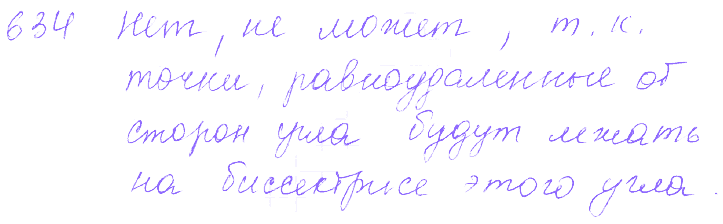 634 Нет, не может, т.к.
точки, равноудаленные от
сторон угла будут лежать
на биссектрисе этого угла.